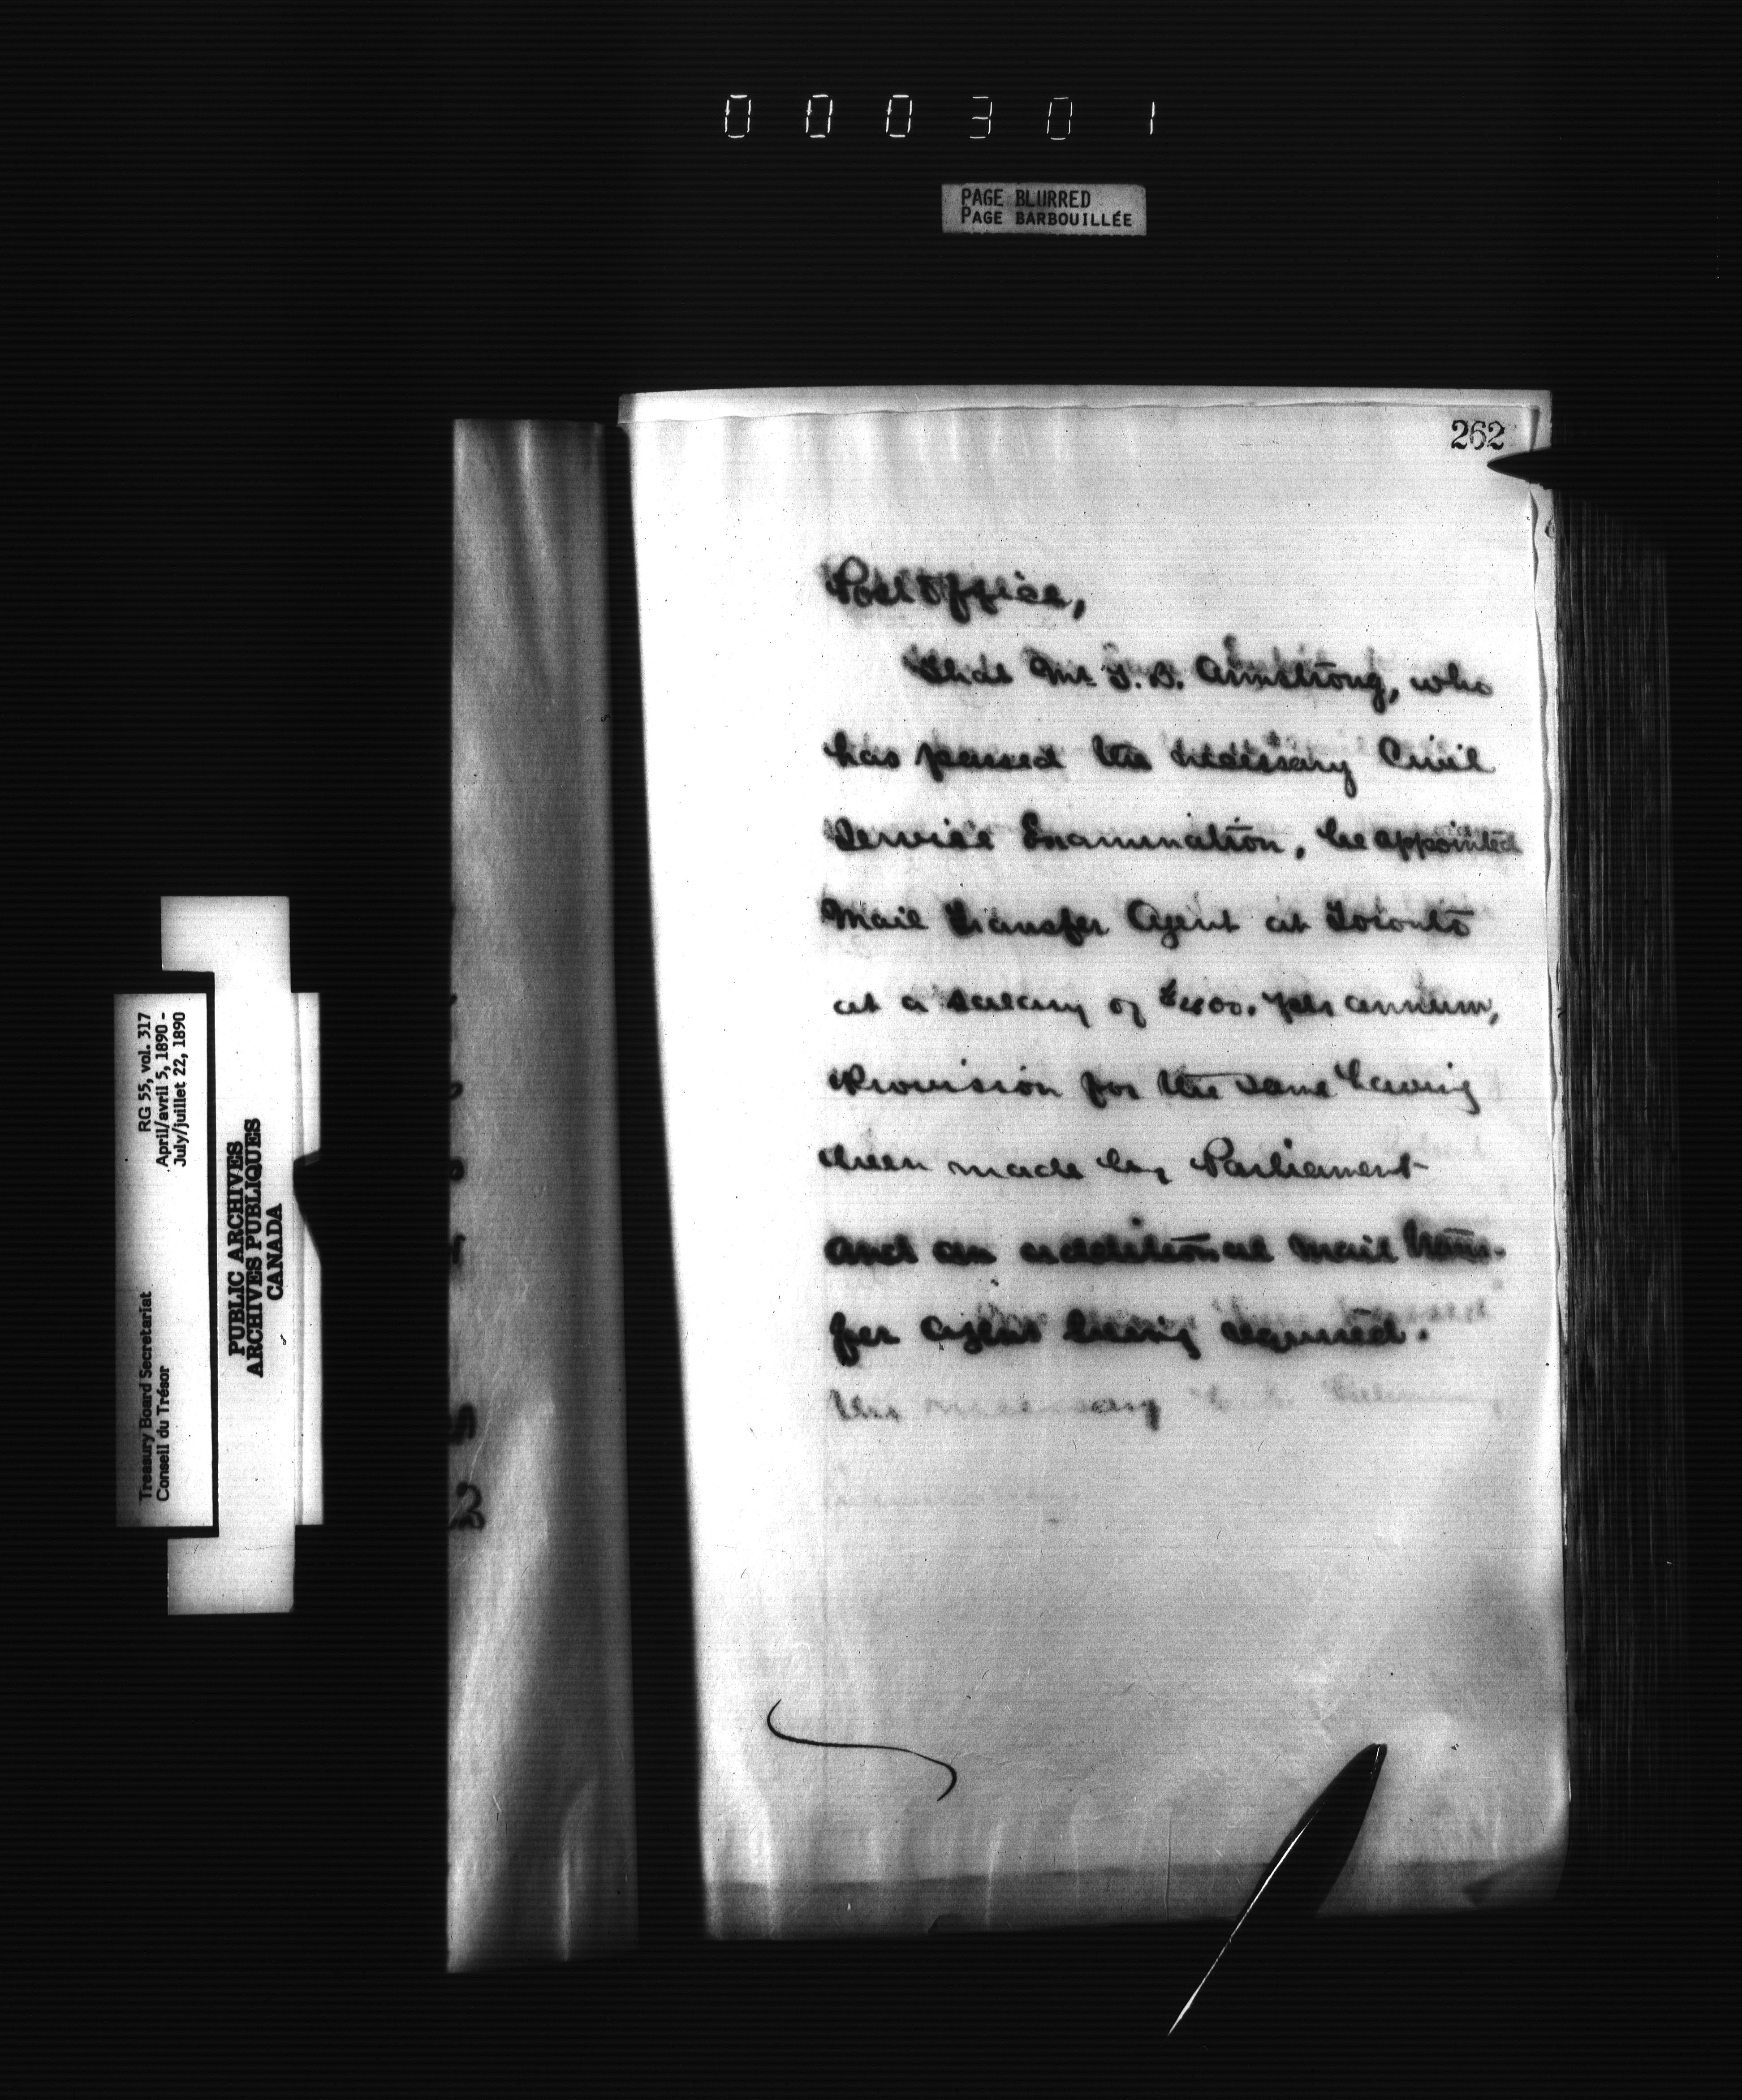 000301
PAGE BLURRED
PAGE BARBOUILLÉE
262
Post Office,
That Mr. T. B. Armstrong, who
has passed the necessary Civil
Service Examination, be appointed
Mail Transfer Agent at Toronto
at a salary of $400. per annum,
Provision for the same having
been made by Parliament
and an additional Mail trans-
fer Agent being required.
the necessary
RG 55, vol. 317
April/avril 5, 1890 -
July/juillet 22, 1890
Treasury Board Secretariat
Conseil du Trésor
PUBLIC ARCHIVES
ARCHIVES PUBLIQUES
CANADA